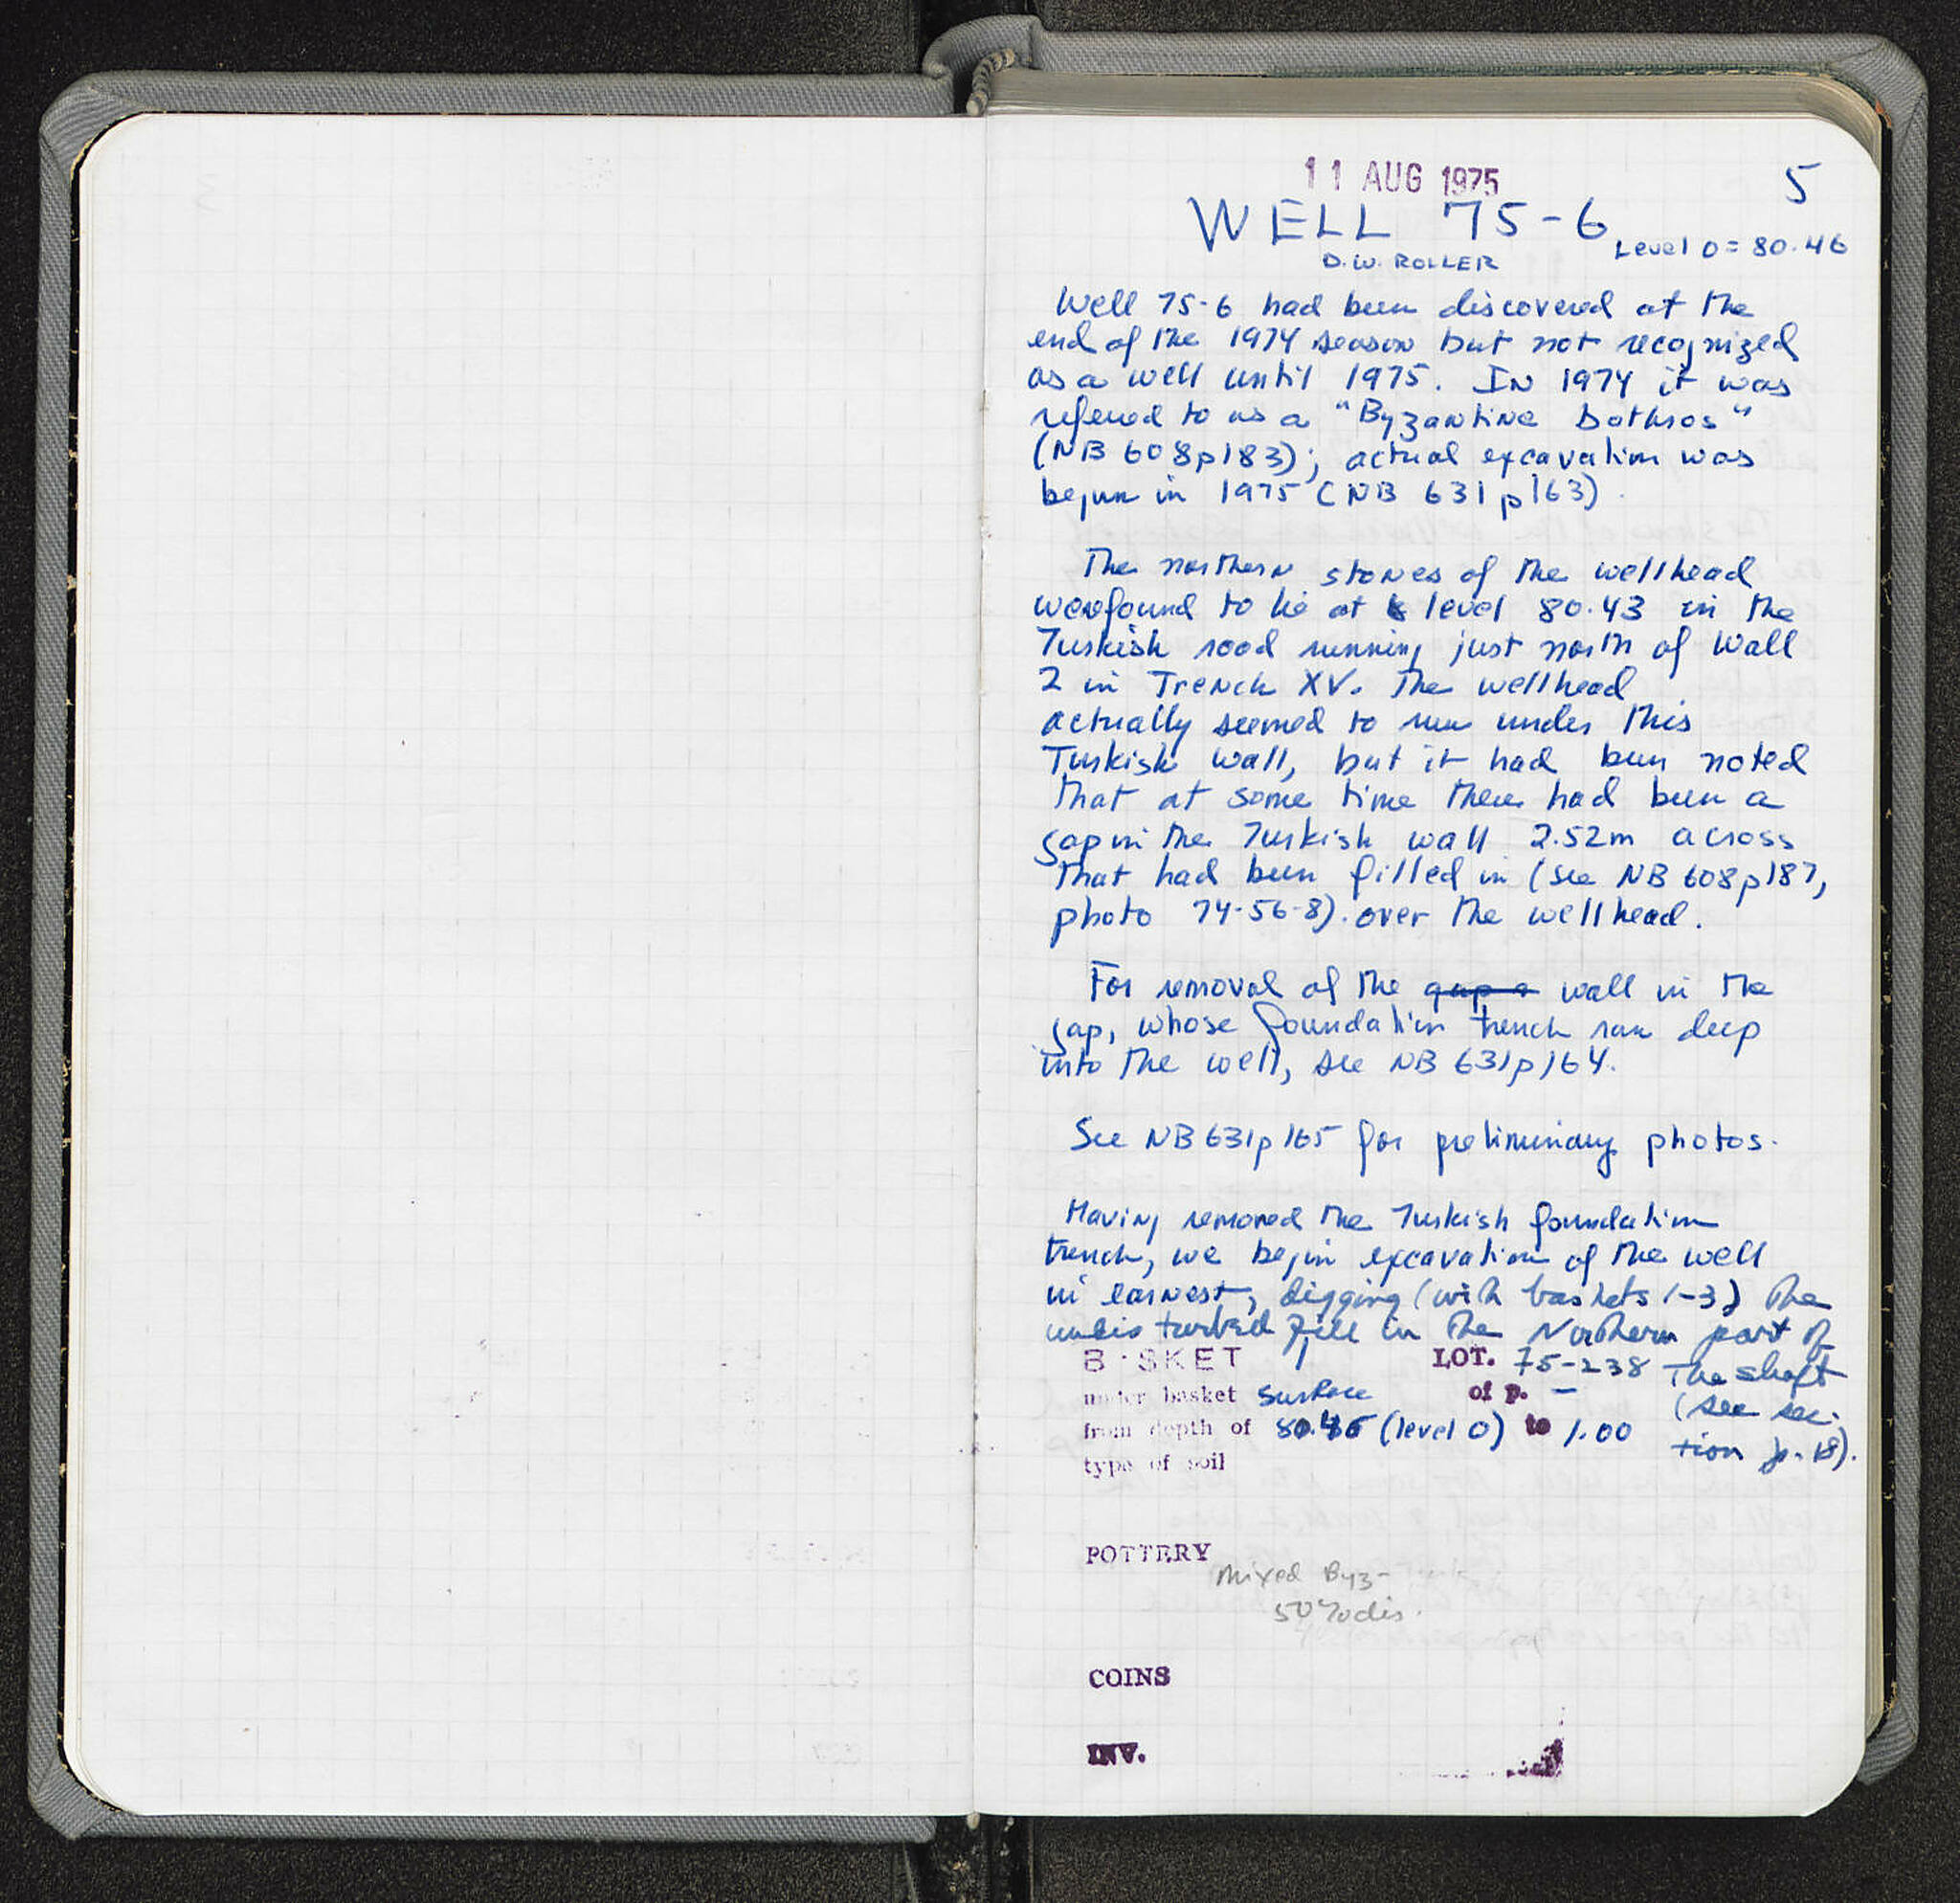 11 AUG 1975
5
WELL 75-6
Level 0 = 80.46
D.W. ROLLER
Well 75-6 had been discovered at the
end of the 1974 season but not recognized
as a well until 1975. In 1974 it was
refered to as a "Byzantine bothros"
(NB 608p183); actual excavation was
begun in 1975 (NB 631 p163).
The northern stones of the wellhead
were found to lie at level 80.43 in the
Turkish road running just north of Wall
2 in Trench XV. The wellhead
actually seemed to run under this
Turkish wall, but it had been noted
that at some time there had been a
gap in the Turkish wall 2.52m across
that had been filled in (see NB 608p187,
photo 74-56-8). over the wellhead.
For removal of the gap wall in the
gap, whose foundation trench ran deep
into the well, see NB 631p164.
See NB 631p165 for preliminary photos.
Having removed the Turkish foundation
trench, we begin excavation of the well
in earnest, digging (with baskets 1-3) the
undisturbed fill in the Northern part of
the shaft
(see sec-
tion p. 18).
BASKET 1 LOT. 75-238
under basket surface of p. –
from depth of 80.46 (level 0) to 1.00
type of soil
POTTERY
Mixed Byz-Turk
50% dis.
COINS
INV.